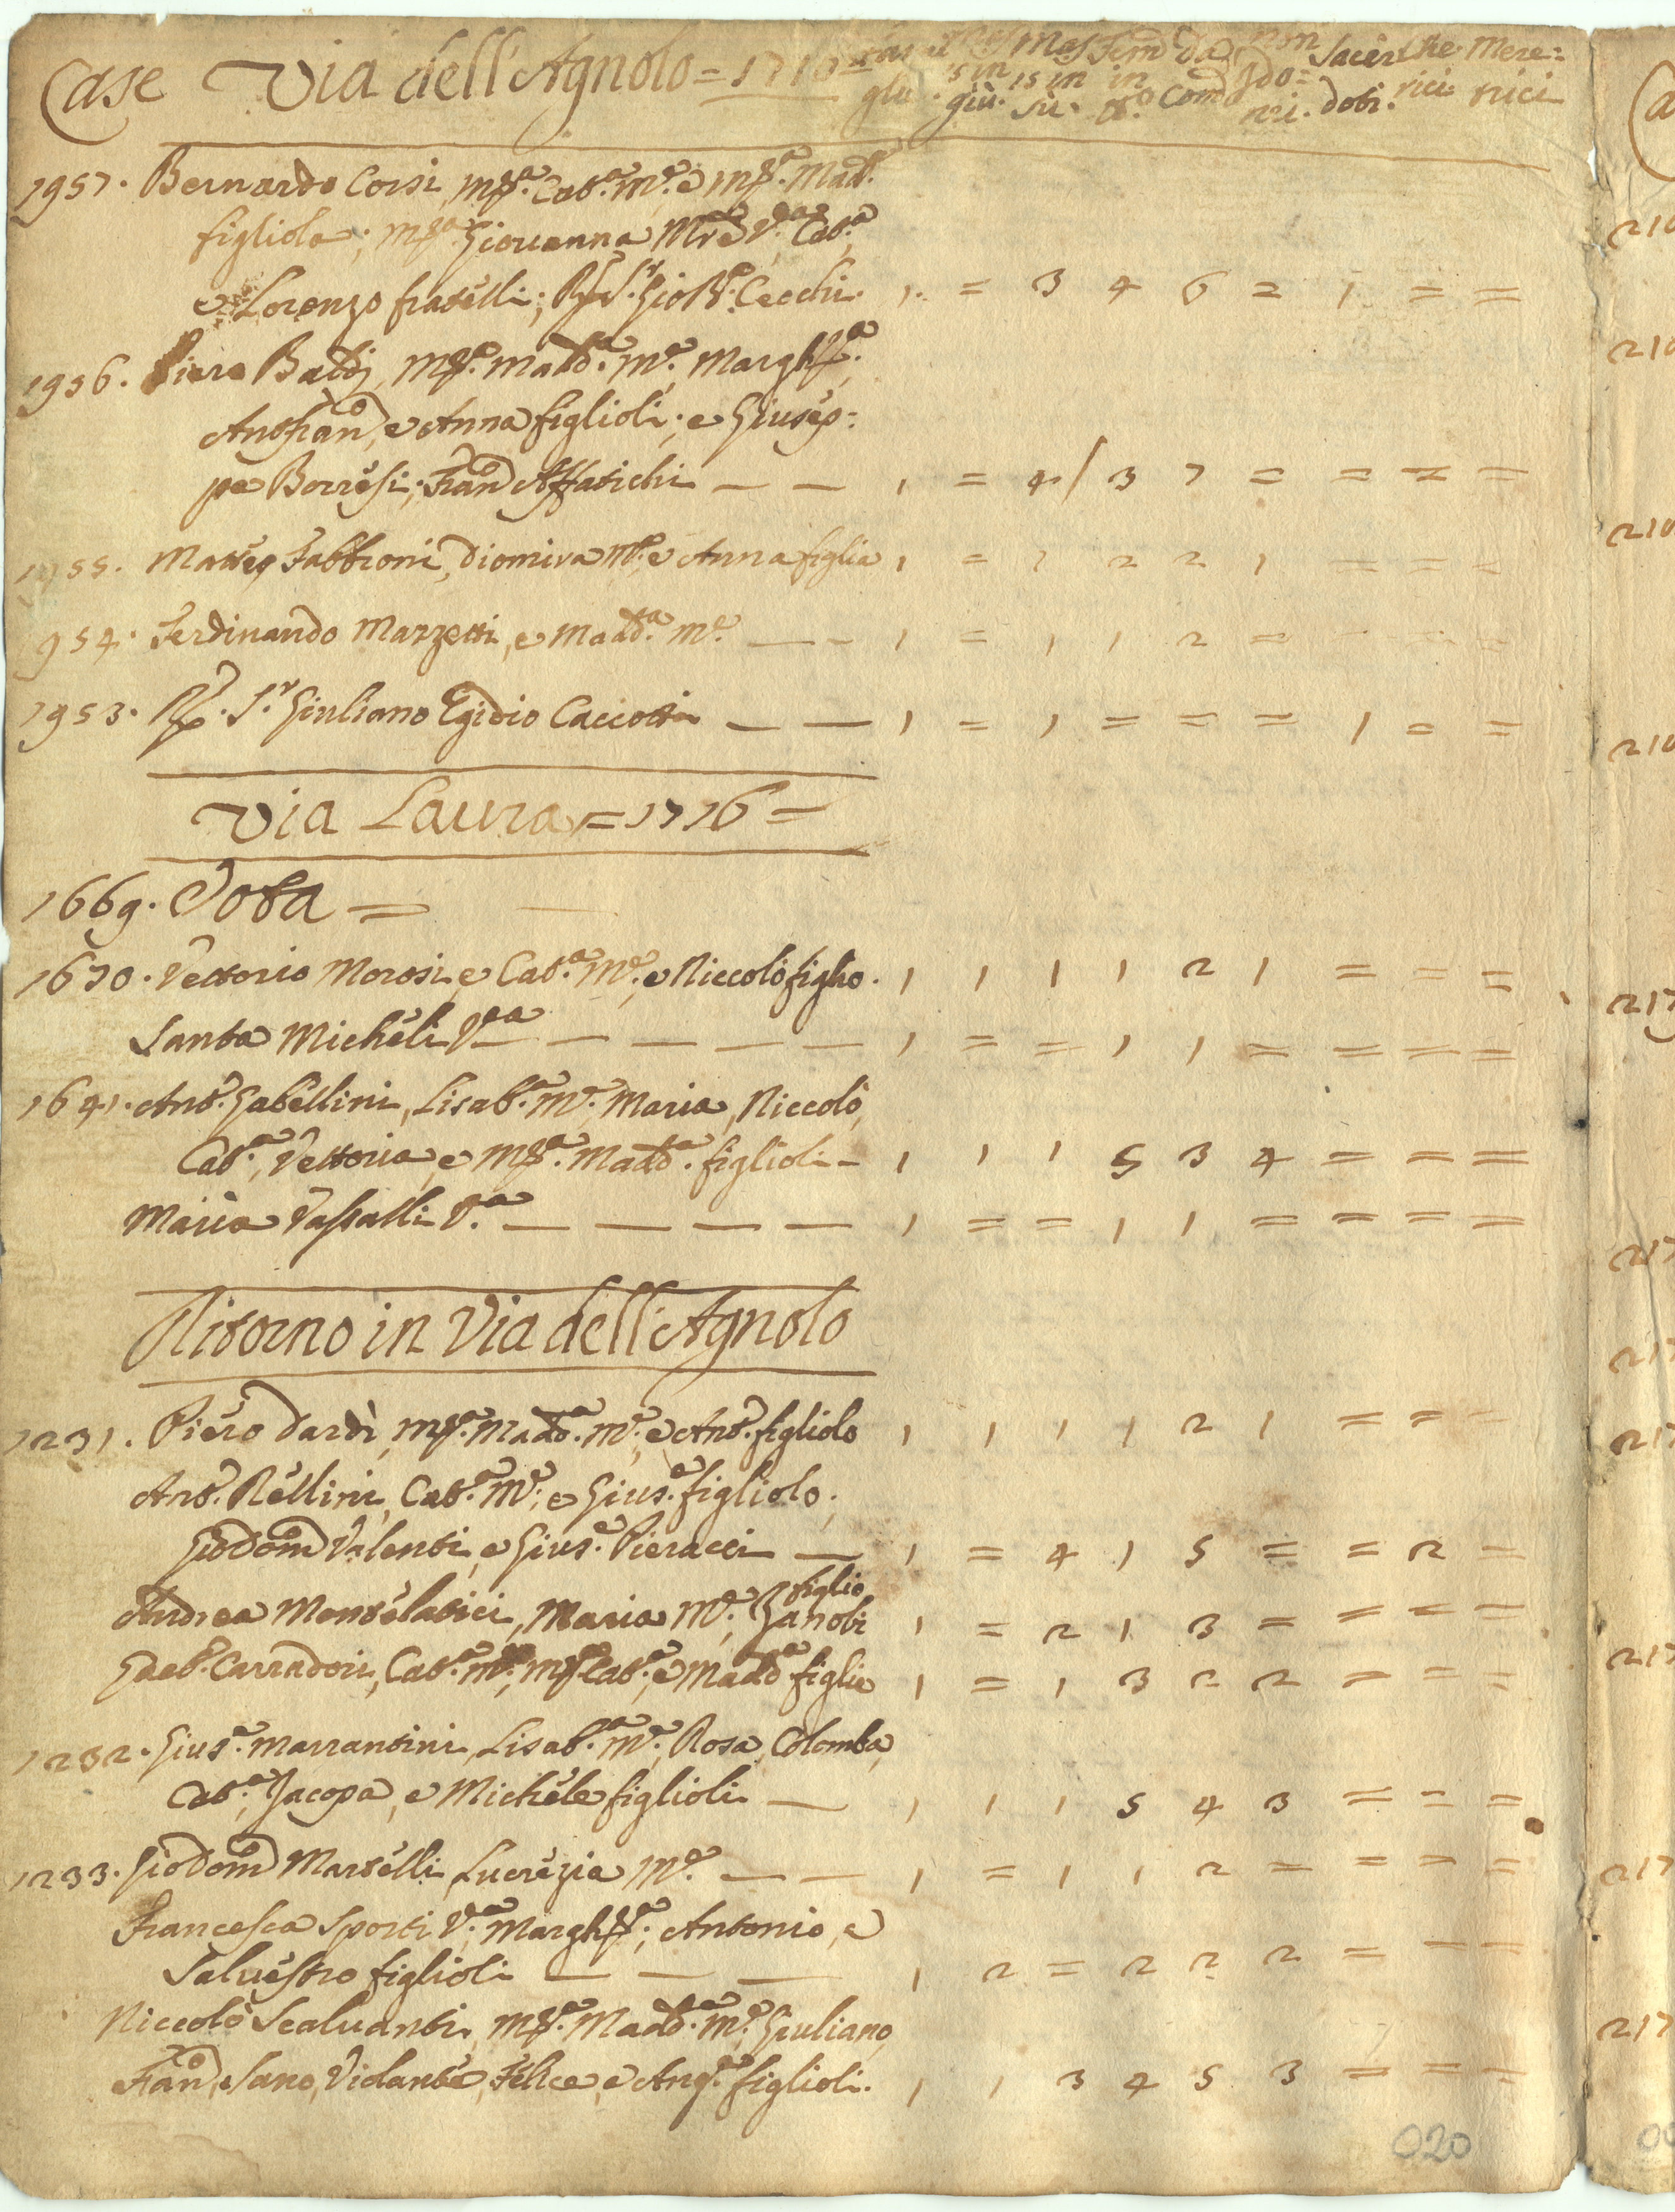 Case Via dell'Agnolo = 1716 =
Mas Mas Fem Da non Sacer Me Mere=
glie 15 in 15 in in Com Ido= doti. rici trici
giù. sù. ni.
1957. Bernardo Corsi, Mª. Catª. Mᵉ. e Mª. Madª.
figliola; Mª. Giovanna Mrē Vª. Catª.
e Lorenzo fratelli; Rᵈᵒ Sʳ. Gio Bª. Cecchi. 1. = 3 4 6 2 1 = =
1956. Piero Baldi, Mª. Maddª. Mᵉ. Marghᵗª.
Antº. Franº, e Anna figlioli; e Giusep:
pe Borresi; Franº Affatichi — — 1 = 4 / 3 7 = = = =
1955. Matteo Fabbroni, Diomira Mᵉ. e Anna figlia 1 = 1 2 2 1 = = =
954. Ferdinando Mazzetti, e Maddª. Mᵉ. — — 1 = 1 1 2 = = = =
1953. Rᵈᵒ. Sʳ. Giuliano Egidio Caccotti — — 1 = 1 = = = 1 = =
Via Laura = 1716 =
1669. Vota =
1670. Vettorio Morosi, e Catª. Mᵉ. e Niccolò figlio. 1 1 1 1 2 1 = = =
Santa Micheli Vª — — — — — 1 = = 1 1 = = = =
1641. Antº. Gabellini, Lisabª. Mᵉ. Maria, Niccolò,
Catª., Vettoria, e Mª. Maddª. figlioli — 1 1 1 5 3 4 = = =
Maria Vassalli Vª. — — — — 1 = = 1 1 = = = =
Ritorno in Via dell'Agnolo
1231. Piero Dardi, Mª. Maddª. Mᵉ. e Antº. figliolo 1 1 1 1 2 1 = = =
Antº. Rellini, Catª. Mᵉ. e Giusᵉ. figliolo;
Giodomº Valenti, e Giusᵉ. Pieracci — 1 = 4 1 5 = = 2 =
figlio
Andrea Montelatici, Maria Mᵉ. Zanobi 1 = 2 1 3 = = = =
Gaebº. Carradori, Catª. Mᵉ., Mª. Catª., e Maddª figlie 1 = 1 3 2 2 = = =
1232. Giusᵉ. Marrantini, Lisabª. Mᵉ., Rosa, Colomba,
Catª., Jacopa, e Michele figlioli — 1 1 1 5 4 3 = = =
1233. Giodomº Martelli, Lucrezia Mᵉ. — — 1 = 1 1 2 = = = =
Francesca Sporti Vª. Marghᵗª; Antonio, e
Salvestro figlioli — — — 1 2 = 2 2 2 = = =
Niccolò Scalvanti, Mª. Maddª. Mᵉ. Giuliano,
Franº, Sano, Violante, Felice, e Angª. figlioli. 1 1 3 4 5 3 = = =
020